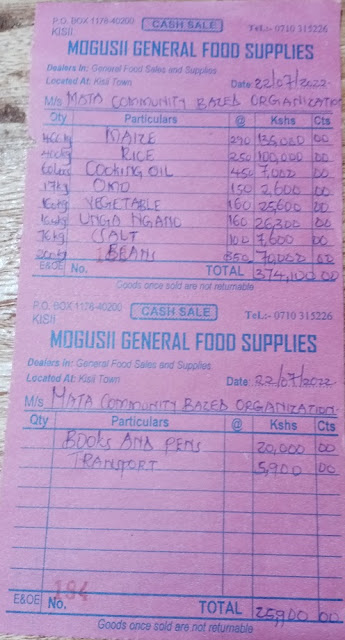 P.O. BOX 1178-40200 CASH SALE Tel.:- 0710 315226
KISII
MOGUSII GENERAL FOOD SUPPLIES
Dealers In: General Food Sales and Supplies
Located At: Kisii Town Date: 22/07/2022
M/s MATA COMMUNITY BAZED ORGANIZATION
Qty Particulars @ Kshs Cts
MAIZE 290 135,000 00
RICE 250 100,000 00
COOKING OIL 450 7,000 00
17kg OMO 150 2,600 00
160kg VEGETABLE 160 25,600 00
UNGA NGANO 160 26,300 00
76kg SALT 100 7,600 00
200kg BEANS 350 70,000 00
E&OE No. TOTAL 374,100 00
Goods once sold are not returnable
P.O. BOX 1178-40200 CASH SALE Tel.:- 0710 315226
KISII
MOGUSII GENERAL FOOD SUPPLIES
Dealers In: General Food Sales and Supplies
Located At: Kisii Town Date: 22/07/2022
M/s MATA COMMUNITY BAZED ORGANIZATION
Qty Particulars @ Kshs Cts
BOOKS AND PENS 20,000 00
TRANSPORT 5,900 00
E&OE No. 194 TOTAL 25,900 00
Goods once sold are not returnable